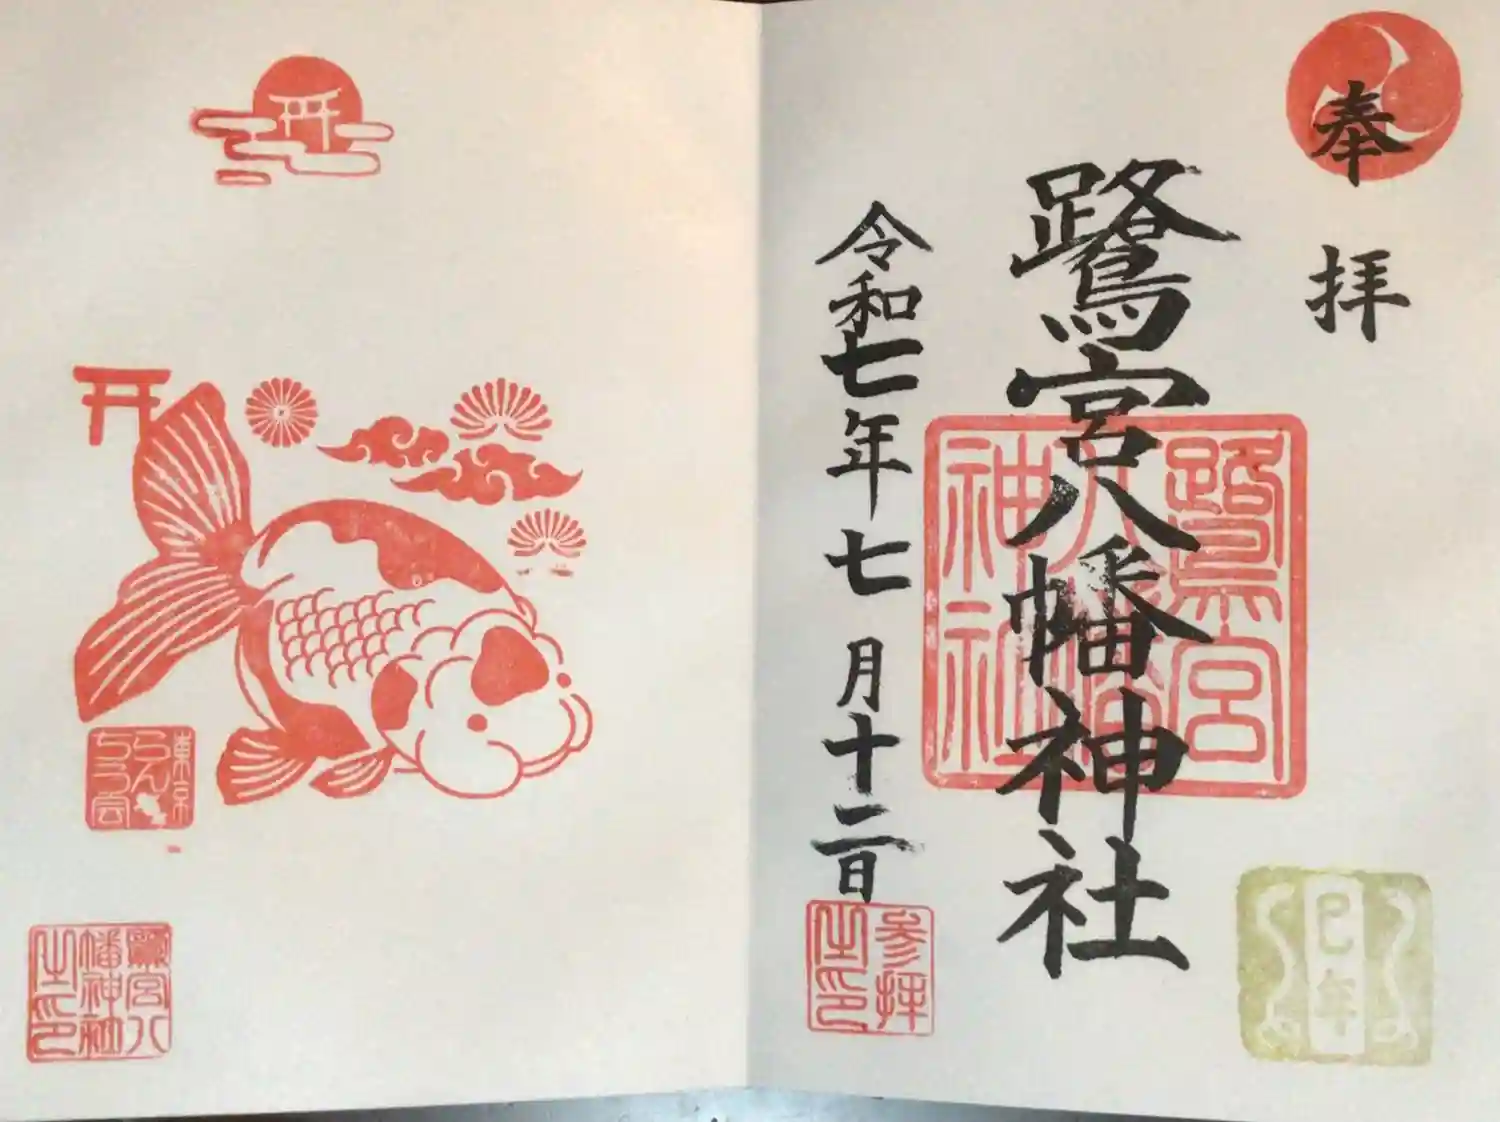 奉拝
鷺宮八幡神社
鷺宮八幡神社
令和七年七月十二日
参拝之印
巳年
東京らんちう会
鷺宮八幡神社之印